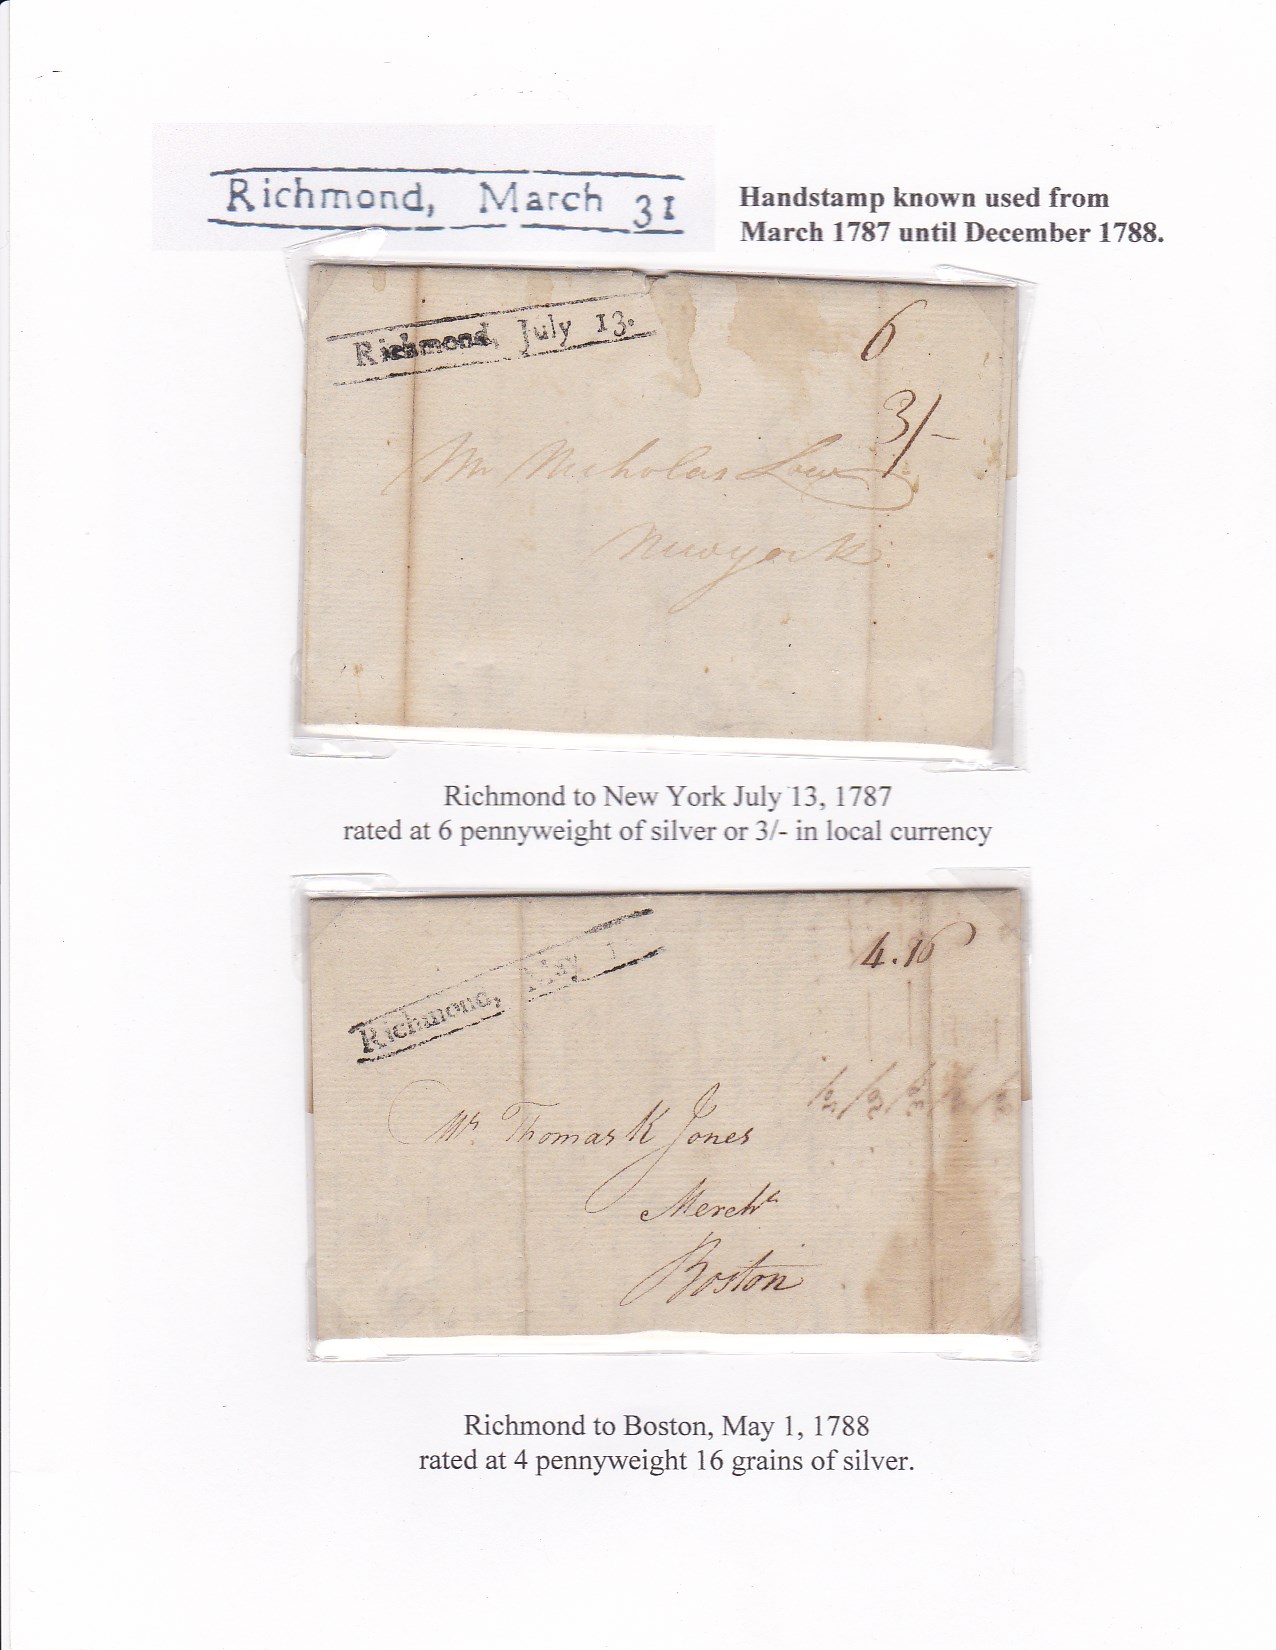 Richmond, March 31
Handstamp known used from
March 1787 until December 1788.
Richmond, July 13.
6
3/-
Mr Nicholas Low
Newyork
Richmond to New York July 13, 1787
rated at 6 pennyweight of silver or 3/- in local currency
Richmond, May 1
4.16
Mr. Thomas K Jones
Mercht
Boston
Richmond to Boston, May 1, 1788
rated at 4 pennyweight 16 grains of silver.